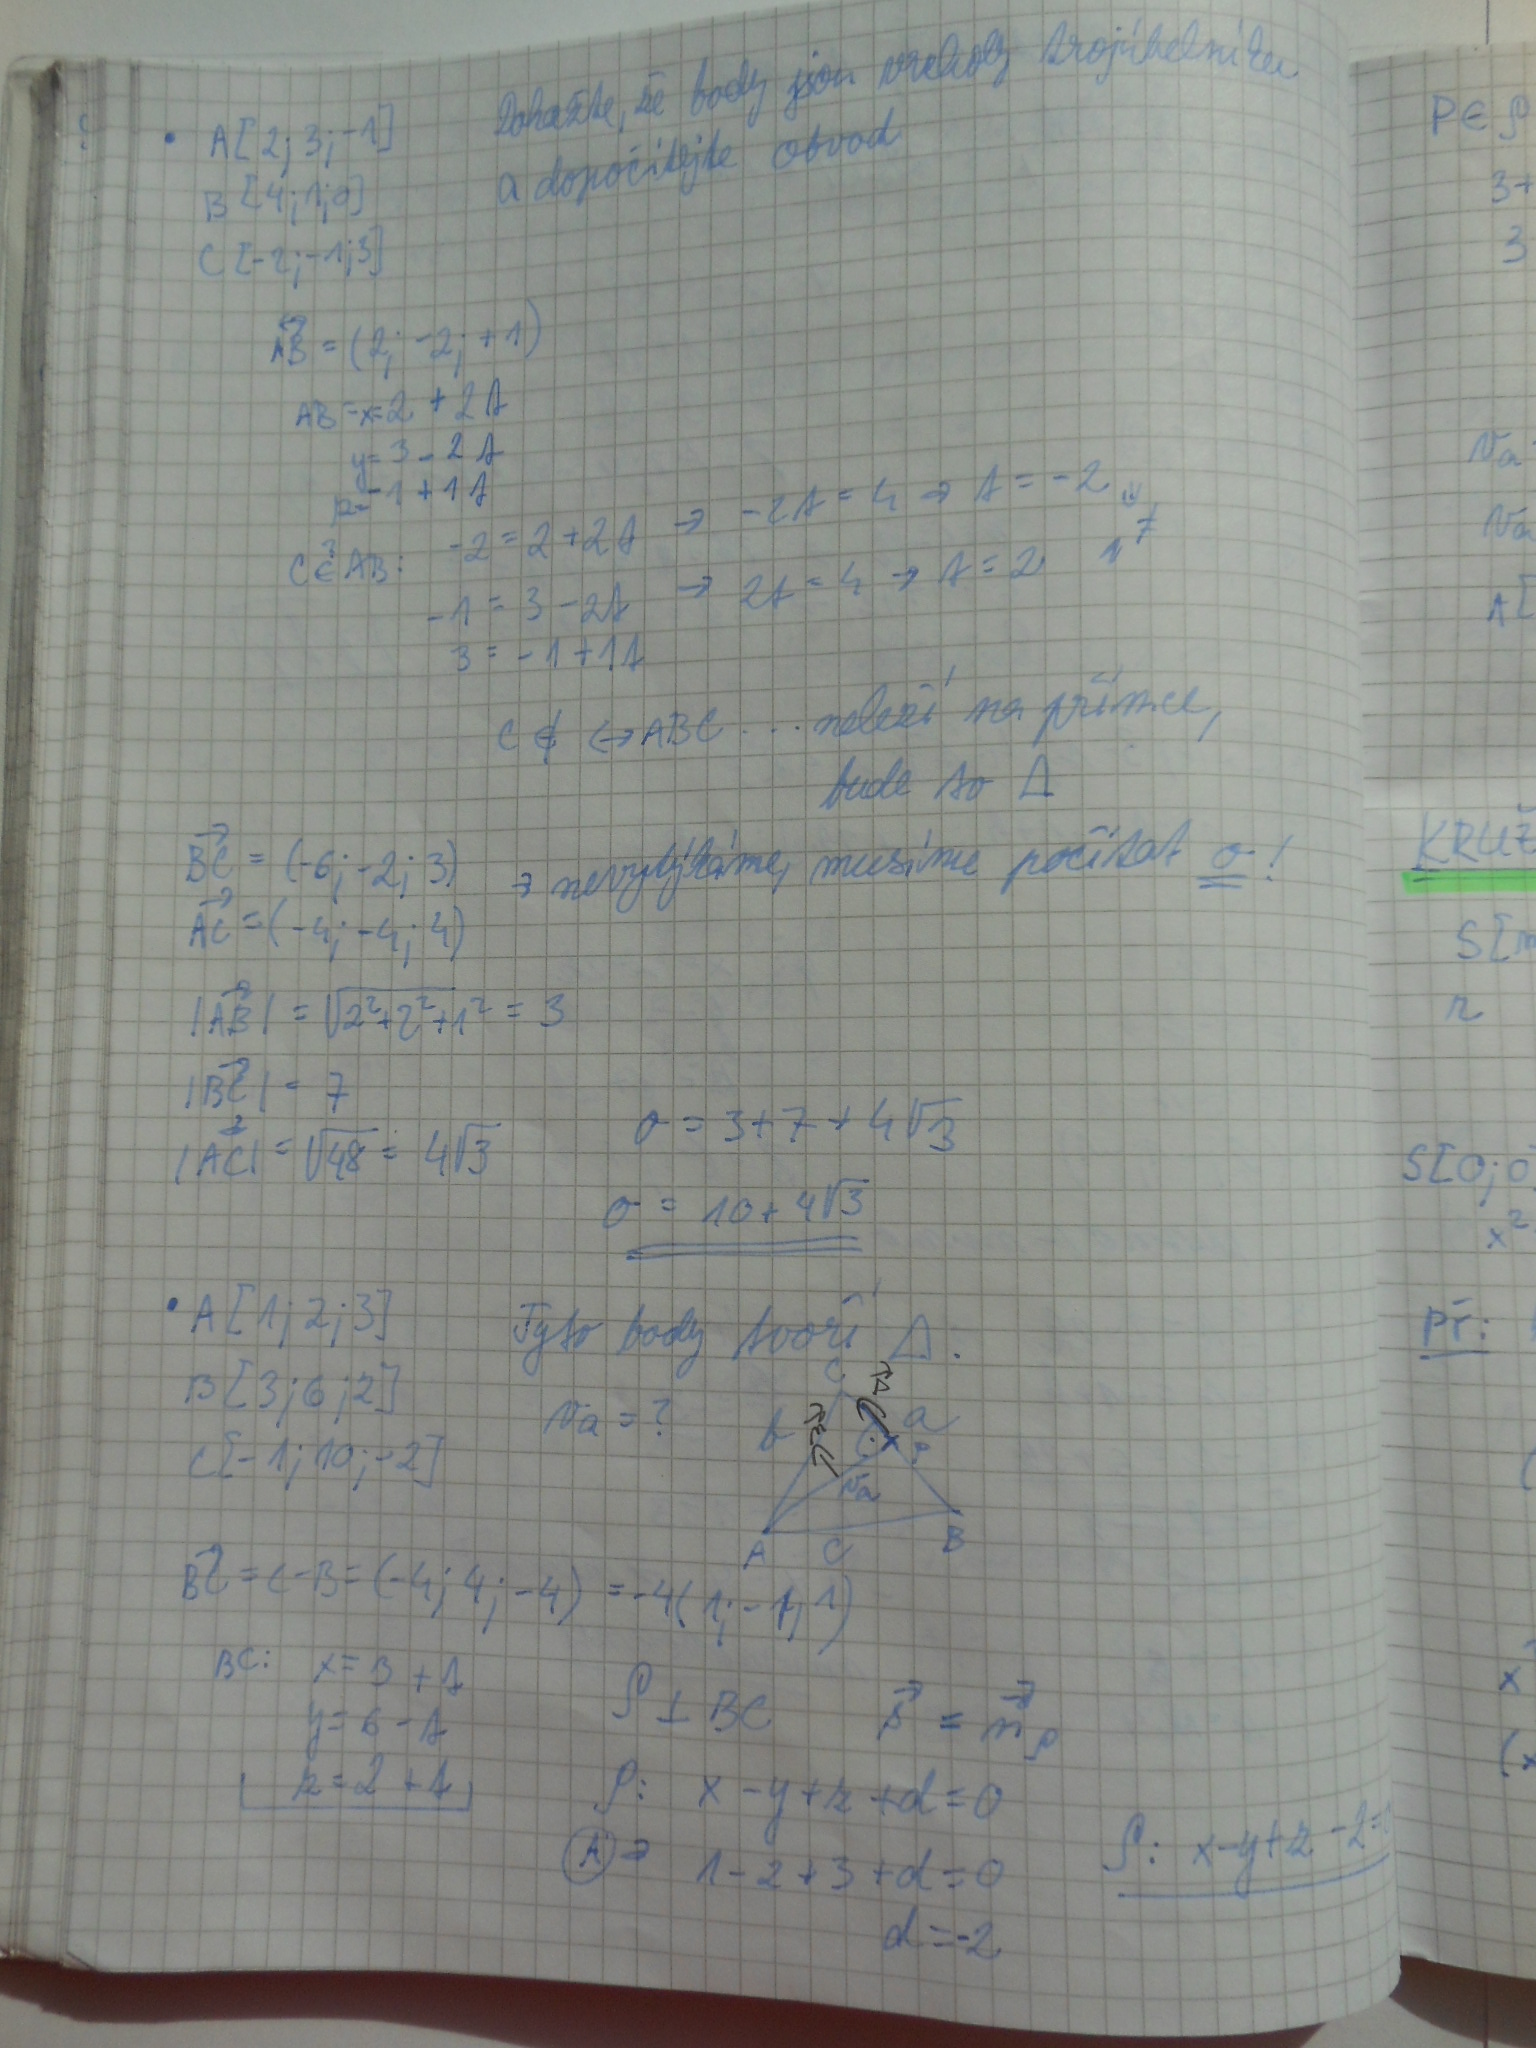 Dokažte, že body jsou vrcholy trojúhelníku
a dopočítejte obvod
• A[2; 3; -1]
B[4; 1; 0]
C[-2; -1; 3]
AB = (2; -2; +1)
AB - x = 2 + 2t
y = 3 - 2t
z = -1 + 1t
C ∈ AB: -2 = 2 + 2t → -2t = 4 → t = -2
-1 = 3 - 2t → 2t = 4 → t = 2 ≠
3 = -1 + 1t
C ∉ ↔ ABC ... neleží na přímce,
bude to Δ
BC = (-6; -2; 3) → nevytýkáme, musíme počítat o!
AC = (-4; -4; 4)
|AB| = √2²+2²+1² = 3
|BC| = 7
|AC| = √48 = 4√3
o = 3 + 7 + 4√3
o = 10 + 4√3
• A[1; 2; 3] Tyto body tvoří Δ.
B[3; 6; 2] va = ?
C[-1; 10; -2]
C
b a
P
va
A C B
BC = C - B = (-4; 4; -4) = -4(1; -1; 1)
BC: x = 3 + t
y = 6 - t
z = 2 + t
ρ ⊥ BC s = nρ
ρ: x - y + z + d = 0
A → 1 - 2 + 3 + d = 0
d = -2
ρ: x - y + z - 2 =
P ∈ ρ
3 +
3
va
va
A[
KRUŽ
S[m
r
S[0; 0
x²
PŘ:
(
x
(x